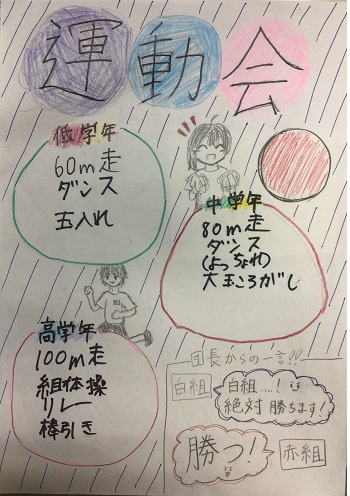 運動会
低学年
60m走
ダンス
玉入れ
中学年
80m走
ダンス
(よっちょれ)
大玉ころがし
高学年
100m走
組体操
リレー
棒引き
団長からの一言!!
白組
白組....!
絶対勝ちます!
勝つ!
赤組